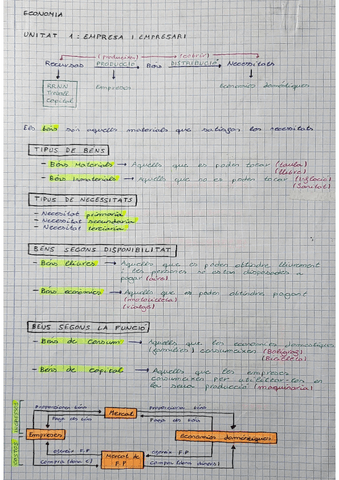 ECONOMIA
UNITAT 1: EMPRESA I EMPRESARI
(producció) (cobrir)
Recursos PRODUCCIÓ Béns DISTRIBUCIÓ Necessitats
RRNN
Treball
Capital
Empreses
Economies domèstiques
Els béns són aquells materials que satisfan les necessitats
TIPUS DE BÉNS
- Béns Materials → Aquells que es poden tocar (taula)
(llibre)
- Béns Immaterials → Aquells que no es poden tocar
(Sanitat)
TIPUS DE NECESSITATS
- Necessitat primaria
- Necessitat secundaria
- Necessitat terciaria
BENS SEGONS DISPONIBILITAT
- Béns lliures → Aquells que es poden obtindre lliurement
i les persones no estan disposades a
pagar (aire)
- Béns econòmics → Aquells que es poden obtindre pagant
(motocicleta)
(viatge)
BENS SEGONS LA FUNCIÓ
- Béns de Consum → Aquells que les economies domèstiques
(famílies) consumeixen (Bolígraf)
(Bicicleta)
- Béns de Capital → Aquells que les empreses
consumeixen per utilitzar-los en
la seua producció (maquinària)
Mercat
Paga de béns
Empreses
Economies domèstiques
Mercat de
F.P